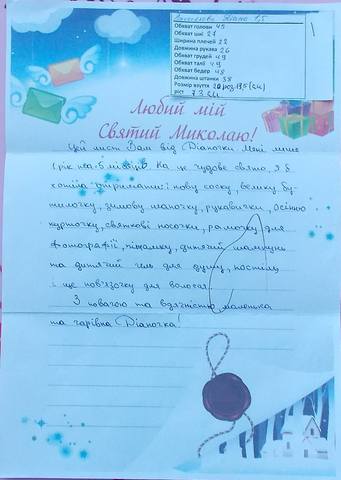 Діана 1,5
Обхват голови 45
Обхват шиї 27
Ширина плечей 22
Довжина рукава 26
Обхват грудей 49
Обхват талії 49
Обхват бедер 48
Довжина штанки 38
Розмір взуття 20 роз. 13,5 (см)
ріст 73 см
Любий мій
Святий Миколаю!
Цей лист Вам від Діаночки. Мені лише
1 рік та 5 місяців. На це чудове свято, я б
хотіла отримати: нову соску, велику бу-
тилочку, зимову шапочку, рукавички, осінню
курточку, святкові носочки, рамочку для
фотографії, піжамку, дитячий шампунь
та дитячий гель для душу, постіль
і ще пов'язочку для волосся.
З повагою та вдячністю маленька
та чарівна Діаночка!